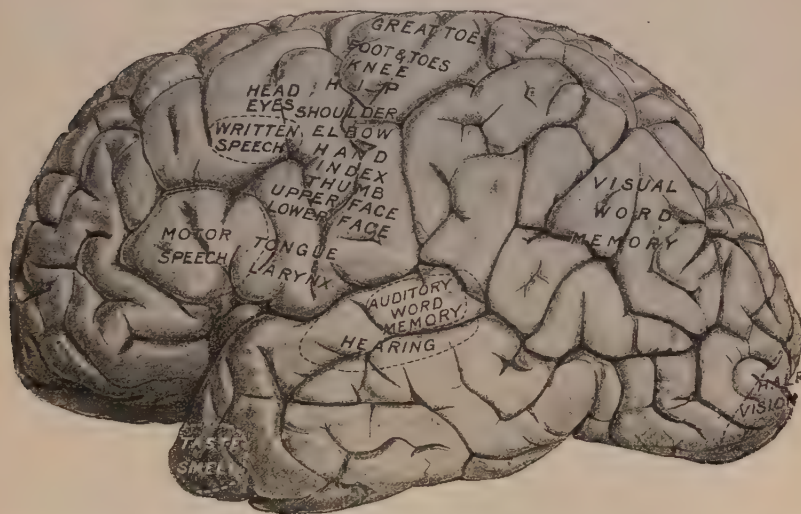 GREAT TOE
FOOT & TOES
KNEE
HIP
HEAD
EYES
SHOULDER
WRITTEN
SPEECH
ELBOW
HAND
INDEX
THUMB
UPPER FACE
LOWER FACE
MOTOR
SPEECH
TONGUE
LARYNX
AUDITORY
WORD
MEMORY
HEARING
VISUAL
WORD
MEMORY
HALF
VISION
TASTE
SMELL